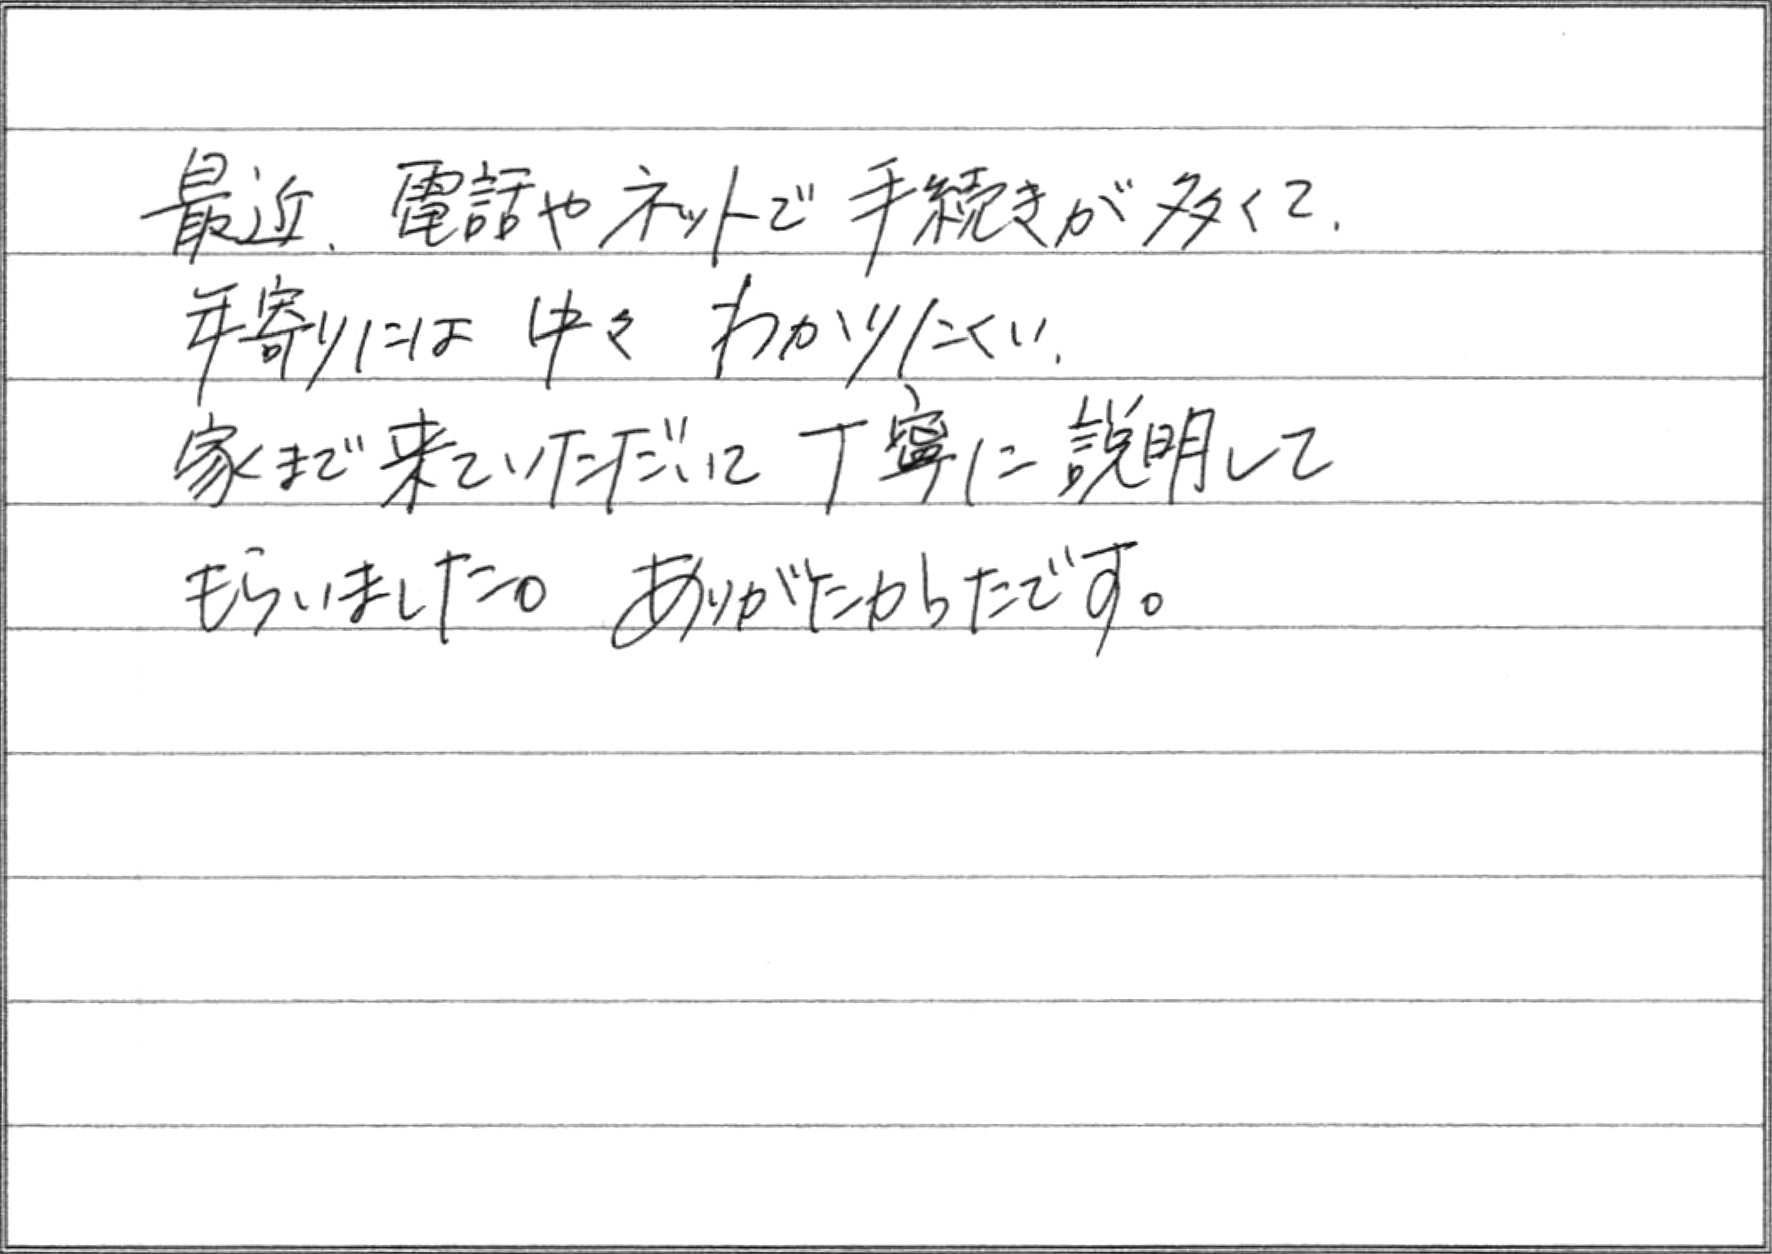 最近、電話やネットで手続きが多くて、
年寄りには中々わかりにくい、
家まで来ていただいて丁寧に説明して
もらいました。ありがたかったです。